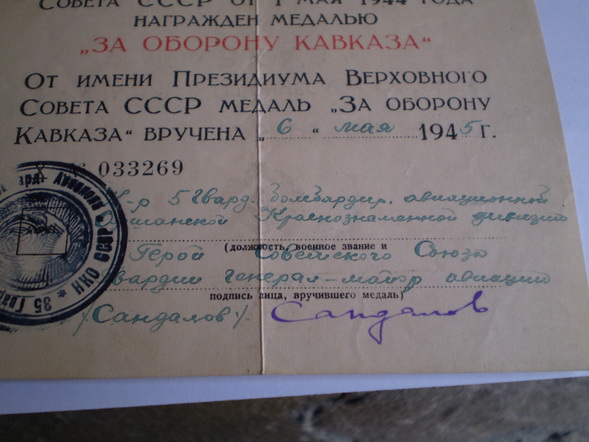 Совета СССР от 1 мая 1944 года
награжден медалью
„ЗА ОБОРОНУ КАВКАЗА“
От имени Президиума Верховного
Совета СССР медаль „За оборону
Кавказа“ вручена „6“ мая 1945 г.
033269
К-р 5 Гвард. Бомбардир. авиационной
Краснознаменной дивизии
Герой Советского Союза
(должность, военное звание и
гвардии генерал-майор авиации
подпись лица, вручившего медаль)
/Сандалов/. Сандалов
НКО СССР * 35